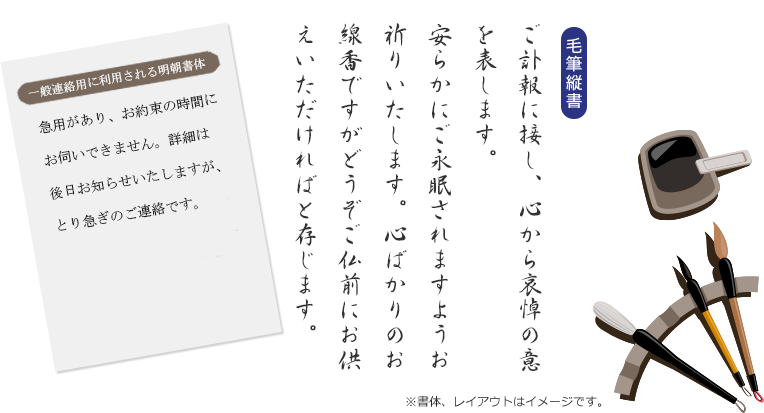 一般連絡用に利用される明朝書体
急用があり、お約束の時間に
お伺いできません。詳細は
後日お知らせいたしますが、
とり急ぎのご連絡です。
毛筆縦書
ご訃報に接し、心から哀悼の意
を表します。
安らかにご永眠されますようお
祈りいたします。心ばかりのお
線香ですがどうぞご仏前にお供
えいただければと存じます。
※書体、レイアウトはイメージです。